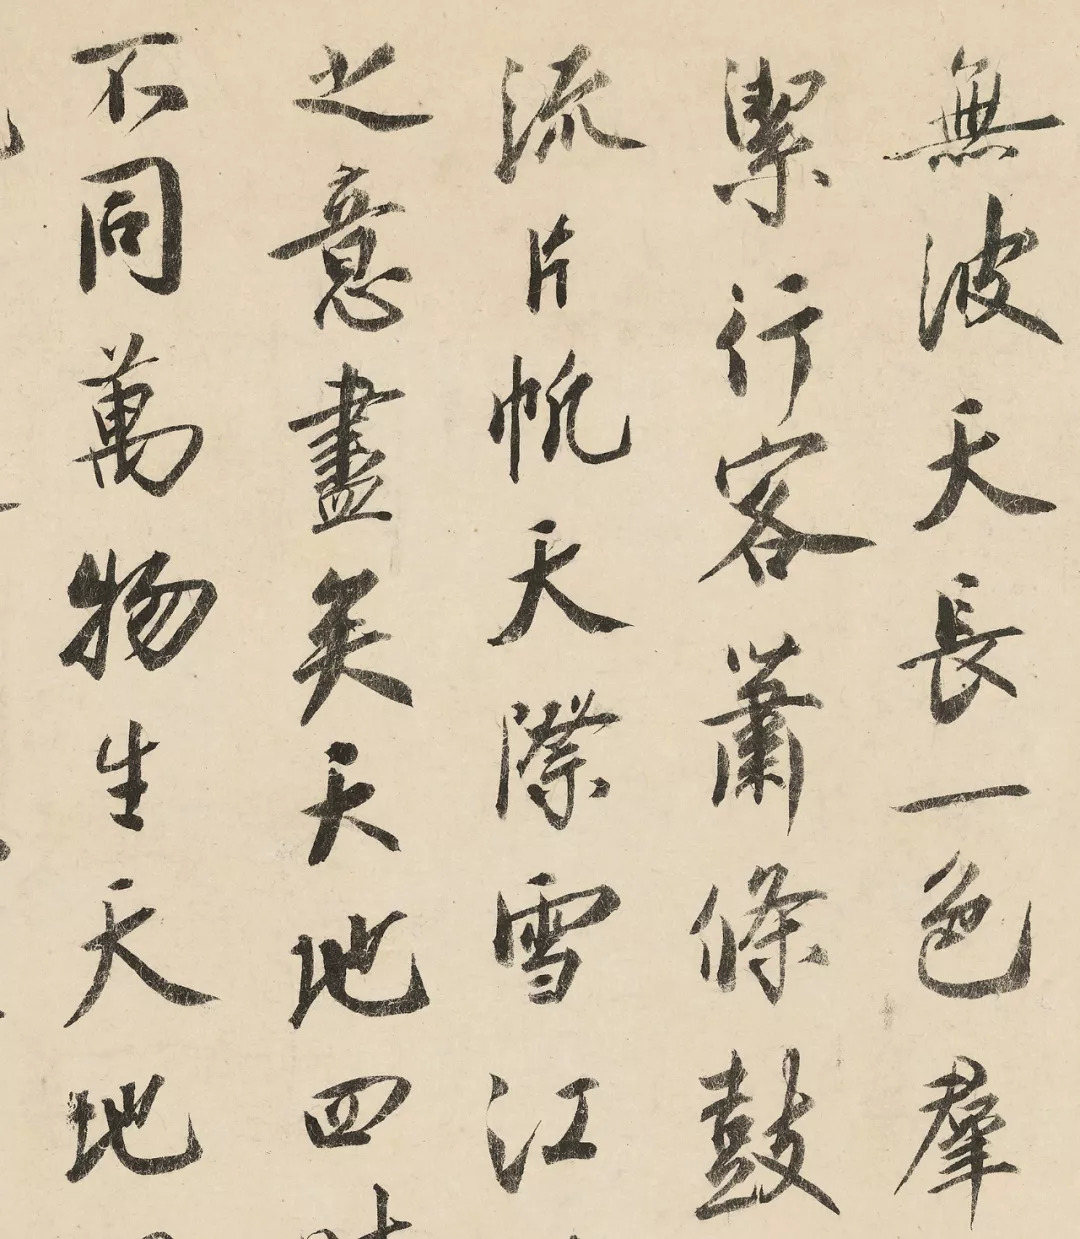 無波天長一色羣
潔行客蕭條鼓
流片帆天際雪江
之意盡矣天地四
不同萬物生天地